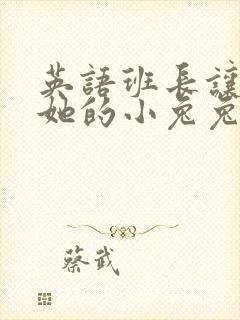 英語班長讓
她的小兔兔
蔡武